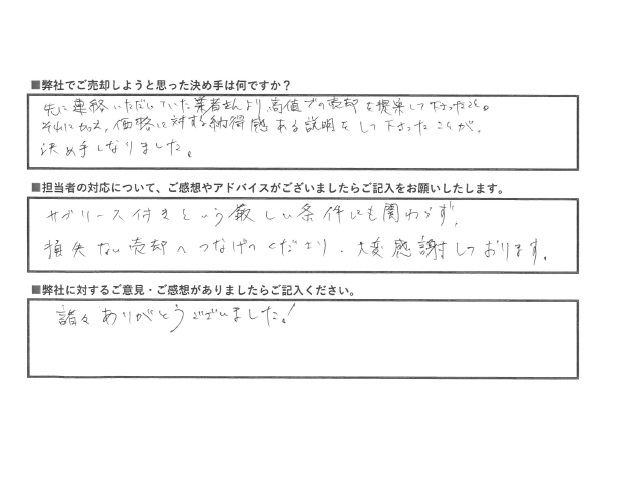 ■弊社でご売却しようと思った決め手は何ですか？
先に連絡いただいていた業者さんより、高値での売却を提案して下さったこと。
それに加え、価格に対する納得感ある説明をして下さったことが、
決め手となりました。
■担当者の対応について、ご感想やアドバイスがございましたらご記入をお願いしたします。
サブリース付きという厳しい条件にも関わらず、
損失ない売却へつなげてくださり、大変感謝しております。
■弊社に対するご意見・ご感想がありましたらご記入ください。
諸々ありがとうございました！